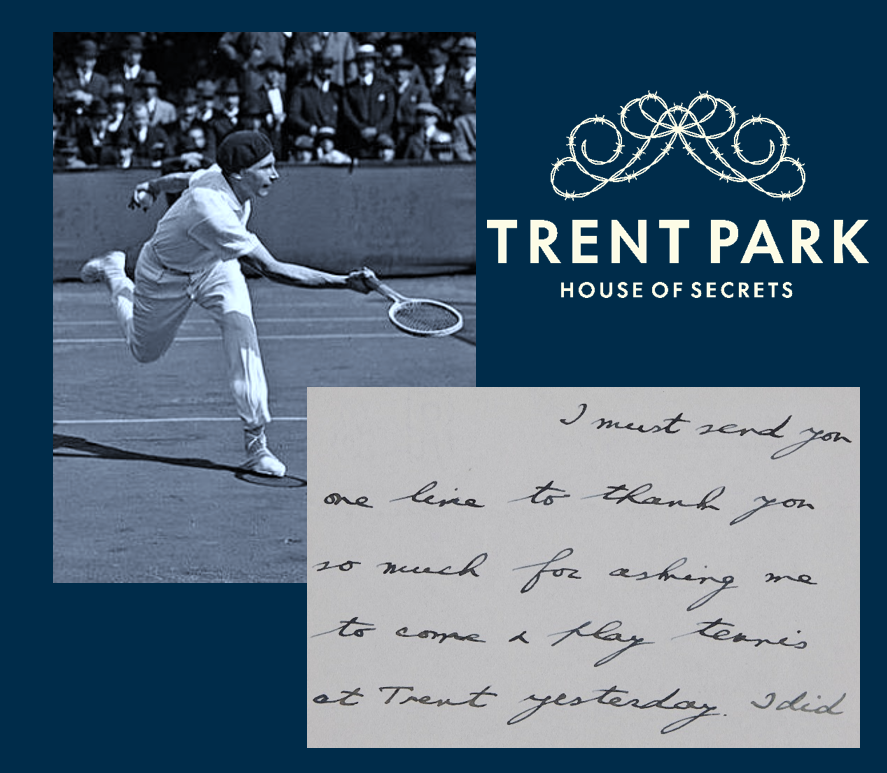 TRENT PARK
HOUSE OF SECRETS
I must send you
one line to thank you
so much for asking me
to come & play tennis
at Trent yesterday. I did